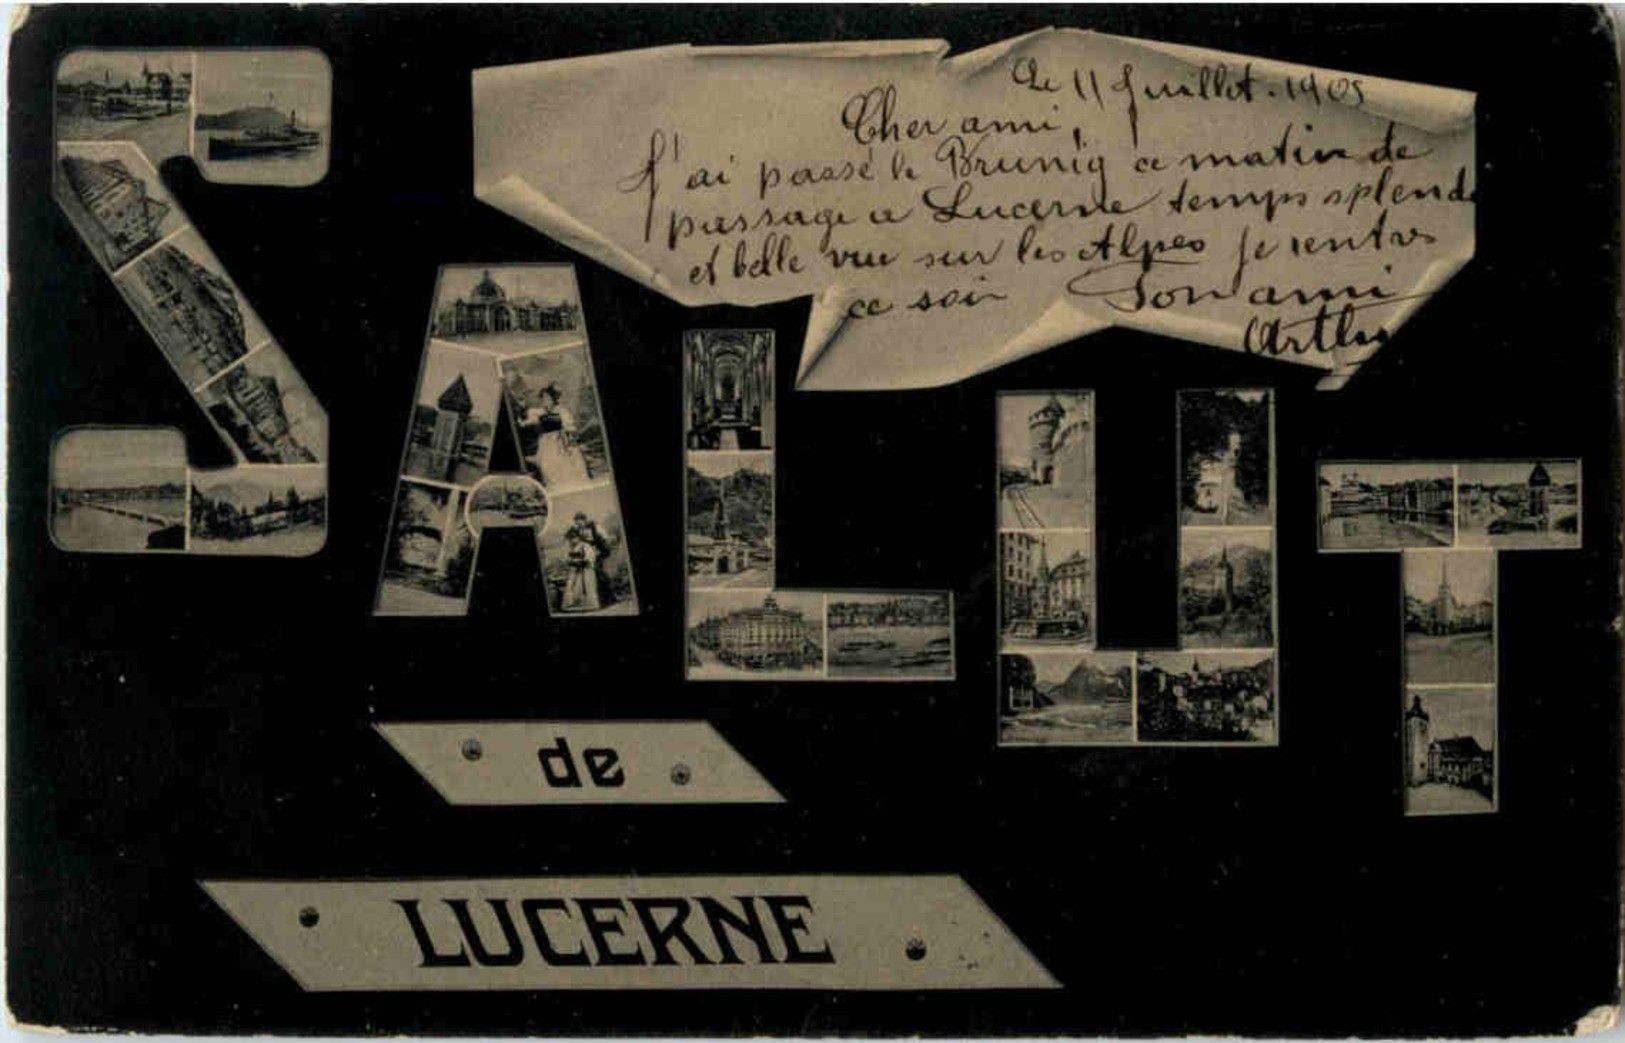 Le 11 Juillet. 1905
Cher ami,
J'ai passé le Brunig ce matin de
passage a Lucerne temps splend
et belle vue sur les Alpes je rentre
ce soir Ton ami
SALUT
de
LUCERNE